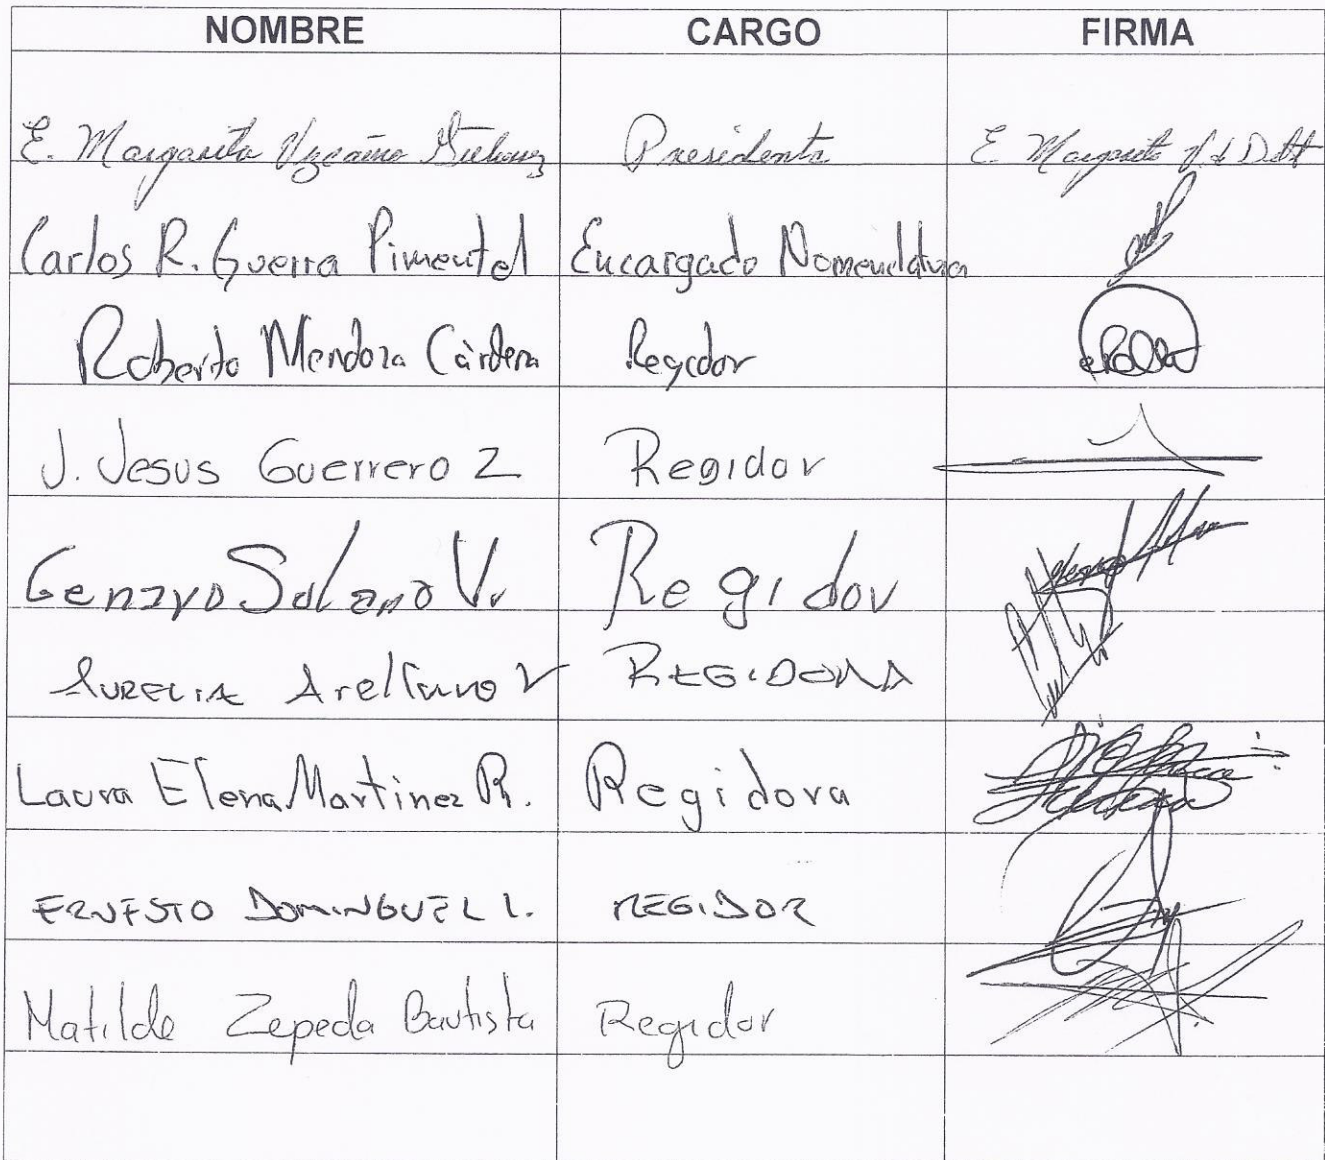 NOMBRE CARGO FIRMA
E. Margarita Vizcaíno Gutiérrez Presidenta E Margarita V. de
Carlos R. Guerra Pimentel Encargado Nomenclatura
Roberto Mendoza Cárdena Regidor
J. Jesus Guerrero Z Regidor
Genaro Solano V. Regidor
AURELIA Arellano V REGIDORA
Laura Elena Martinez R. Regidora
ERNESTO DOMINGUEZ L. REGIDOR
Matilde Zepeda Bautista Regidor